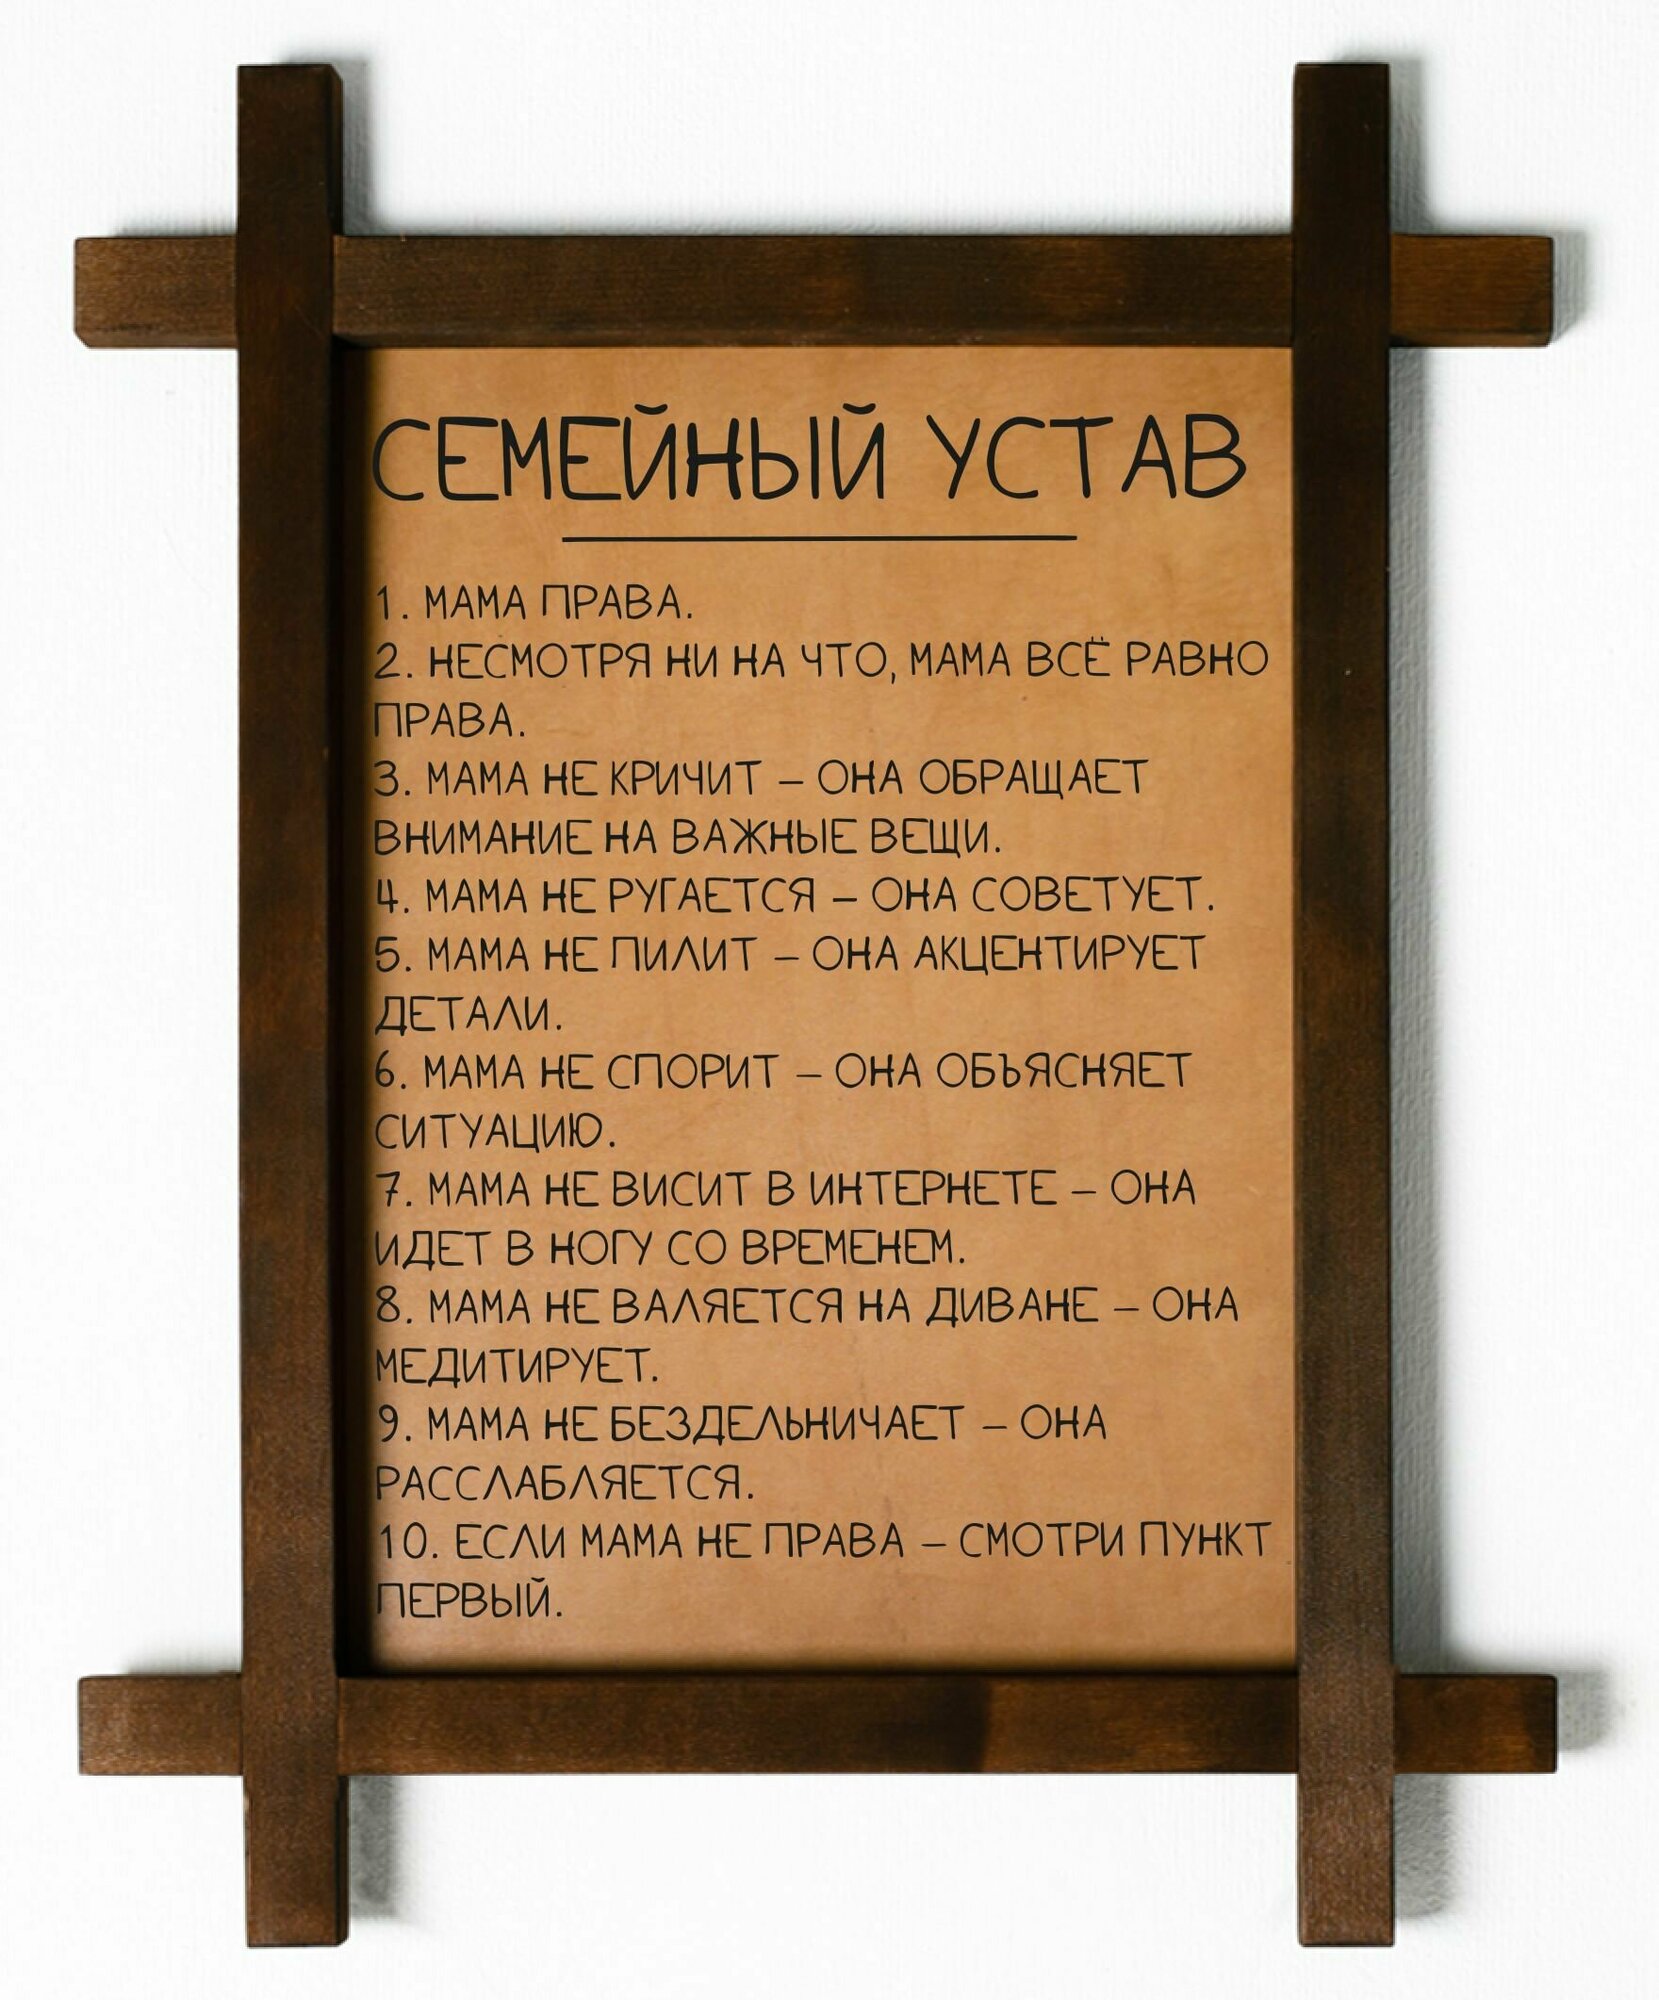 СЕМЕЙНЫЙ УСТАВ
1. МАМА ПРАВА.
2. НЕСМОТРЯ НИ НА ЧТО, МАМА ВСЁ РАВНО
ПРАВА.
3. МАМА НЕ КРИЧИТ – ОНА ОБРАЩАЕТ
ВНИМАНИЕ НА ВАЖНЫЕ ВЕЩИ.
4. МАМА НЕ РУГАЕТСЯ – ОНА СОВЕТУЕТ.
5. МАМА НЕ ПИЛИТ – ОНА АКЦЕНТИРУЕТ
ДЕТАЛИ.
6. МАМА НЕ СПОРИТ – ОНА ОБЪЯСНЯЕТ
СИТУАЦИЮ.
7. МАМА НЕ ВИСИТ В ИНТЕРНЕТЕ – ОНА
ИДЕТ В НОГУ СО ВРЕМЕНЕМ.
8. МАМА НЕ ВАЛЯЕТСЯ НА ДИВАНЕ – ОНА
МЕДИТИРУЕТ.
9. МАМА НЕ БЕЗДЕЛЬНИЧАЕТ – ОНА
РАССЛАБЛЯЕТСЯ.
10. ЕСЛИ МАМА НЕ ПРАВА – СМОТРИ ПУНКТ
ПЕРВЫЙ.